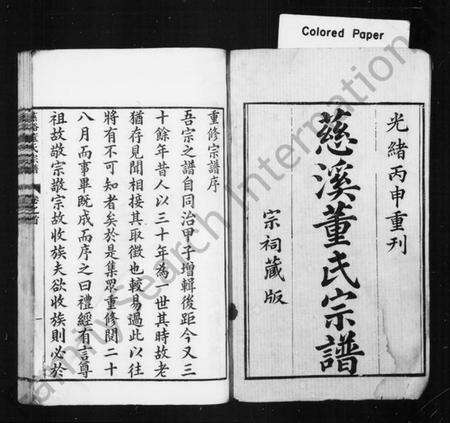 Colored Paper
光緒丙申重刊
慈溪董氏宗譜
宗祠藏版
重修宗譜序
吾宗之譜自同治甲子增輯後距今又三
十餘年昔人以三十年為一世其時故老
猶存見聞相接其取徵也較易過此以往
將有不可知者矣於是集眾重修閱二十
八月而事畢既成而序之曰禮經有言尊
祖故敬宗敬宗故收族夫欲收族則必於
慈谿董氏宗譜
FamilySearch International